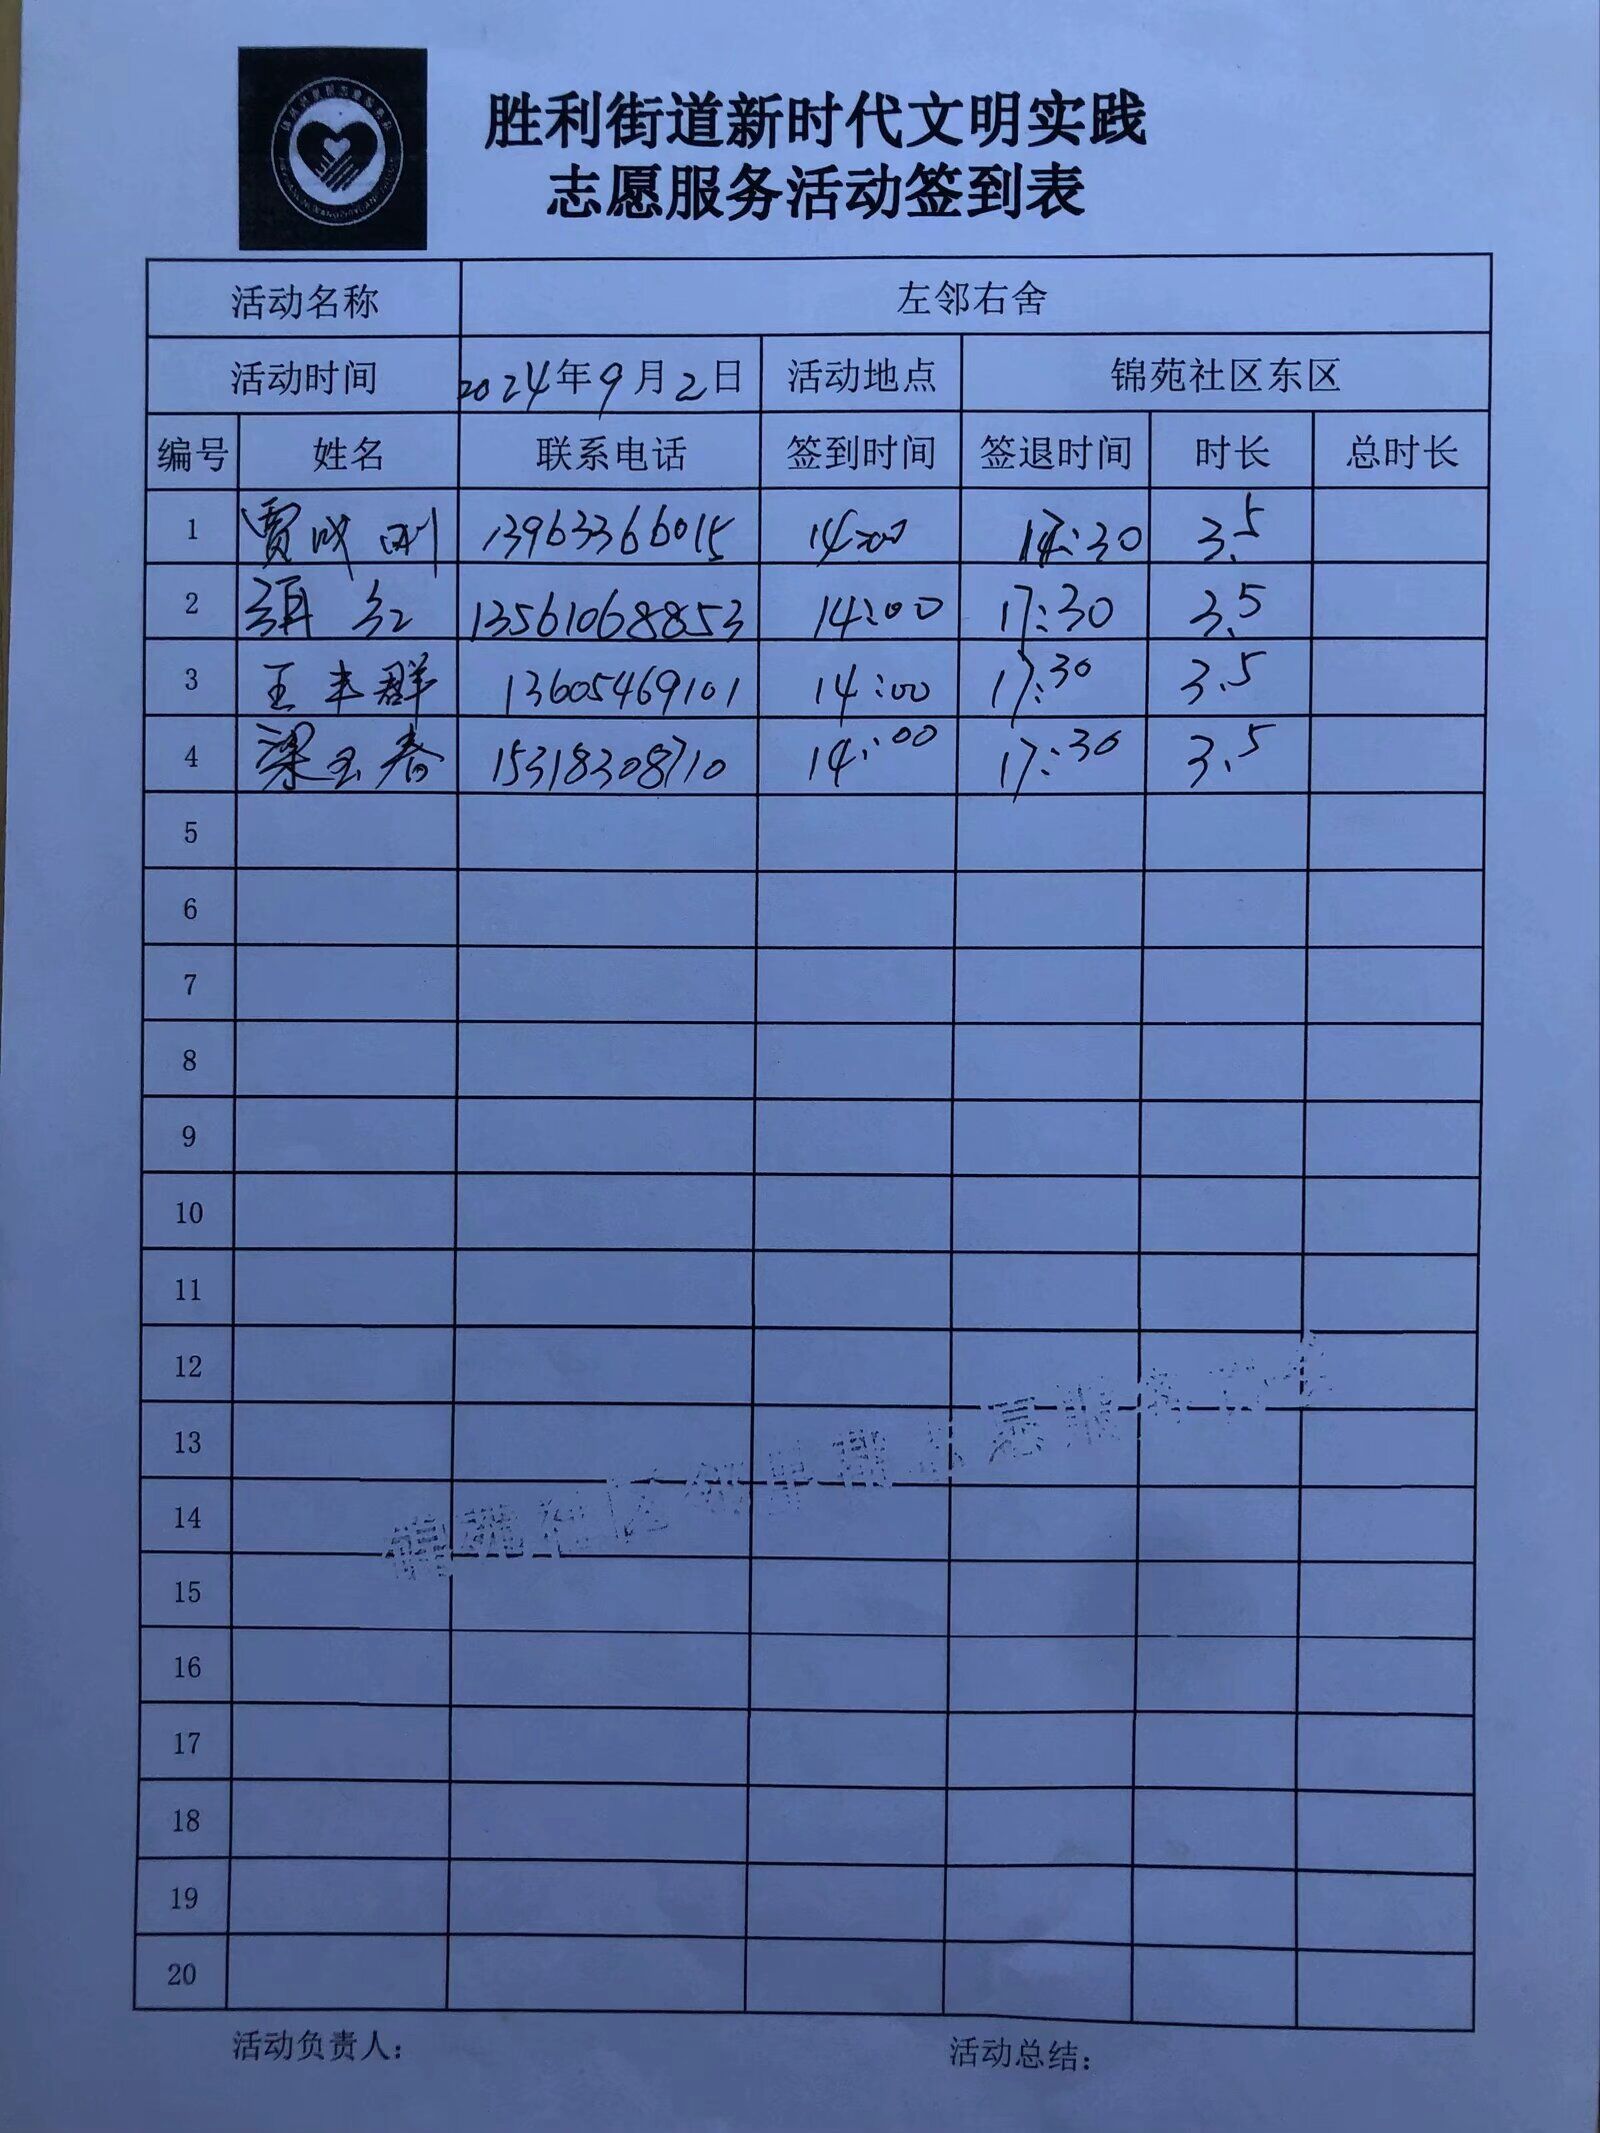 胜利街道新时代文明实践
志愿服务活动签到表
活动名称 左邻右舍
活动时间 2024年9月2日 活动地点 锦苑社区东区
编号 姓名 联系电话 签到时间 签退时间 时长 总时长
1 贾 13963366015 14:00 17:30 3.5
2 红 13561068853 14:00 17:30 3.5
3 王丰群 13605469101 14:00 17:30 3.5
4 梁玉春 15318308710 14:00 17:30 3.5
5
6
7
8
9
10
11
12
13
14
15
16
17
18
19
20
活动负责人: 活动总结: